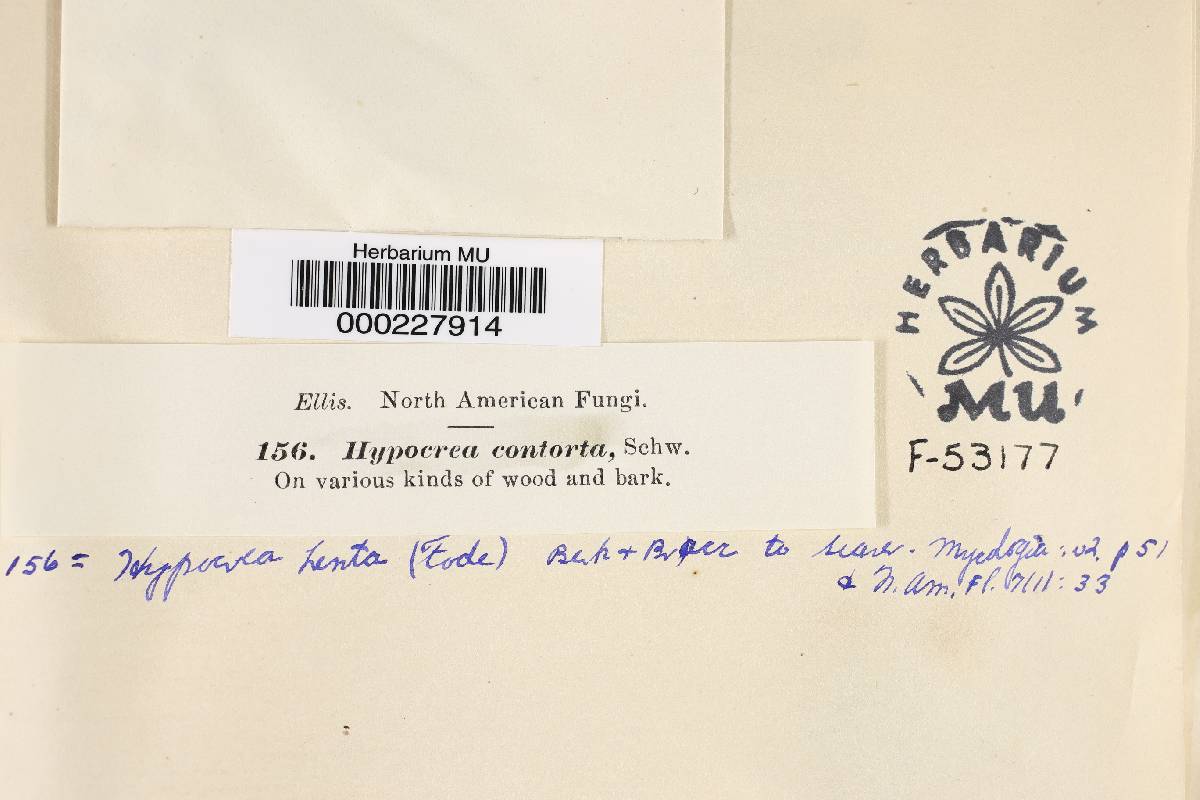 Herbarium MU
000227914
HERBARIUM
MU
F-53177
Ellis. North American Fungi.
156. Hypocrea contorta, Schw.
On various kinds of wood and bark.
156 = Hypocrea lenta (Tode) Berk + Br acc to Seaver. Mycologia: v2, p 51
& N. Am. Fl. 7(1): 33